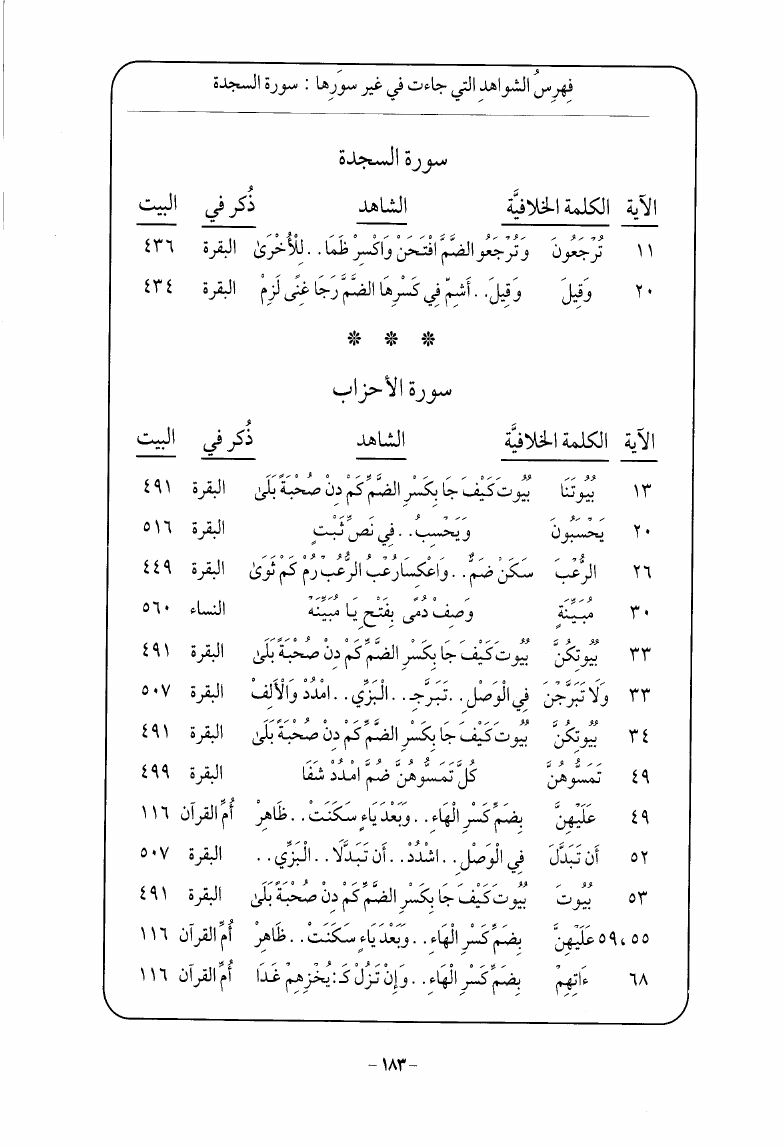 فهرسُ الشواهد التي جاءت في غير سورِها : سورة السجدة
سورة السجدة
الآية الكلمة الخلافيَّة الشاهد ذُكر في البيت
١١ تُرْجَعُونَ وَتُرْجَعُو الضَّمَّ افْتَحَنْ وَاكْسِرْ ظَمَا . . لِلْأُخْرَىٰ البقرة ٤٣٦
٢٠ وَقِيلَ وَقِيلَ . . أَشِمّْ فِي كَسْرِهَا الضَّمَّ رَجَا غِنًى لَزِمْ البقرة ٤٣٤
* * *
سورة الأحزاب
الآية الكلمة الخلافيَّة الشاهد ذُكر في البيت
١٣ بُيُوتَنَا بُيُوتَ كَيْفَ جَا بِكَسْرِ الضَّمِّ كَمْ دِنْ صُحْبَةً بَلَىٰ البقرة ٤٩١
٢٠ يَحْسَبُونَ وَيَحْسِبُ . . فِي نَصٍّ ثَبْتٍ البقرة ٥١٦
٢٦ الرُّعْبَ سَكَنْ ضَمٌّ . . وَاعْكِسَا رُعْبُ الرُّعْبُ رُمْ كَمْ ثَوَىٰ البقرة ٤٤٩
٣٠ مُبَيِّنَةٍ وَصِفْ دُمًى بِفَتْحِ يَا مُبَيِّنَهْ النساء ٥٦٠
٣٣ بُيُوتِكُنَّ بُيُوتَ كَيْفَ جَا بِكَسْرِ الضَّمِّ كَمْ دِنْ صُحْبَةً بَلَىٰ البقرة ٤٩١
٣٣ وَلَا تَبَرَّجْنَ فِي الْوَصْلِ . . تَبَرَّجَ . . الْبَزِّي . . امْدُدْ وَالْأَلِفْ البقرة ٥٠٧
٣٤ بُيُوتِكُنَّ بُيُوتَ كَيْفَ جَا بِكَسْرِ الضَّمِّ كَمْ دِنْ صُحْبَةً بَلَىٰ البقرة ٤٩١
٤٩ تَمَسُّوهُنَّ كُلَّ تَمَسُّوهُنَّ ضُمَّ امْدُدْ شَفَا البقرة ٤٩٩
٤٩ عَلَيْهِنَّ بِضَمِّ كَسْرِ الْهَاءِ . . وَبَعْدَ يَاءٍ سَكَنَتْ . . ظَاهِرْ أُمّ القرآن ١١٦
٥٢ أَن تَبَدَّلَ فِي الْوَصْلِ . . اشْدُدْ . . أَن تَبَدَّلَا . . الْبَزِّي . . البقرة ٥٠٧
٥٣ بُيُوتَ بُيُوتَ كَيْفَ جَا بِكَسْرِ الضَّمِّ كَمْ دِنْ صُحْبَةً بَلَىٰ البقرة ٤٩١
٥٥،٥٩ عَلَيْهِنَّ بِضَمِّ كَسْرِ الْهَاءِ . . وَبَعْدَ يَاءٍ سَكَنَتْ . . ظَاهِرْ أُمّ القرآن ١١٦
٦٨ ءَاتِهِمْ بِضَمِّ كَسْرِ الْهَاءِ . . وَإِنْ تَزُلْ كَـ: يُخْزِهِمْ غَدَا أُمّ القرآن ١١٦
- ١٨٣ -